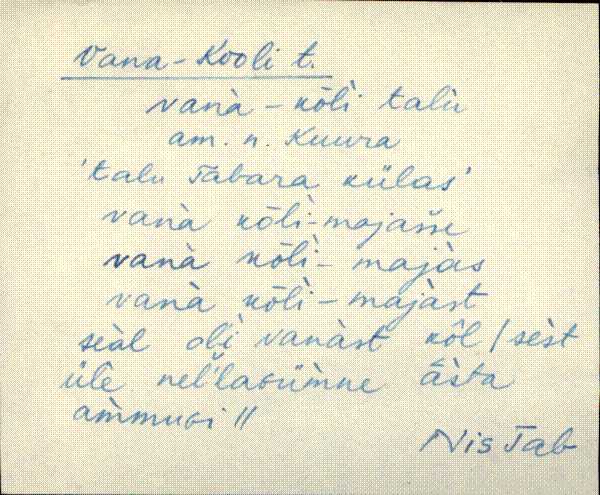 Vana-Kooli t.
vanà - kōlì talù
am. n. Kuura
'talu Tabara külas'
vanà kōlì-majasse
vanà kōlì - majàs
vanà kōlì - majàst
seàl olì vanàst kōl / sèst
ülè nel'l'aGümne āsta
ammuGi //
Nis Tab